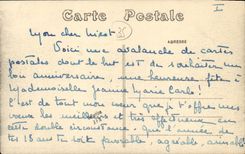 I
Carte Postale
25
ADRESSE
Mon cher
Voici une avalanche de cartes
postales dont le but est de souhaiter un
bon anniversaire, une heureuse fête à
Mademoiselle Jeanne Marie Carle!
C'est de tout mon cœur que je t'offre mes
vœux les meilleurs et très affectueux en
cette double circonstance. Que l'année de
tes 18 ans te soit favorable, agréable, aimable